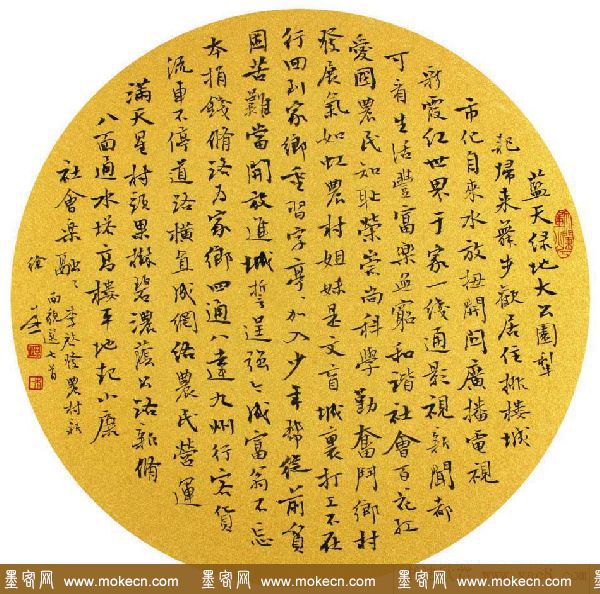 蓝天绿地大公園犁
耙歸来舞步歡居住排樓城
市化自来水放扭開闻廣播電視
彩霞红世界千家一线通影視新聞都
可看生活豐富樂無窮和諧社會百花红
愛國農民知耻榮崇尚科學勤奮鬥鄉村
發展氣如虹農村姐妹是文盲城裏打工不在
行回到家鄉重習字亭亭加入少年幫從前貧
困苦難當開放進城誓逞强强成富翁不忘
本捐錢脩路为家鄉四通八達九州行客貨
流車不停道路横直成網络農民營運
滿天星村頭果樹碧濃蔭公路新脩
八面通水塔高樓平地起小康
社會樂融融 李
農村新
面貌選七首
徐
墨客网 www.mokecn.com 墨客网 www.mokecn.com 墨客网 www.mokecn.com